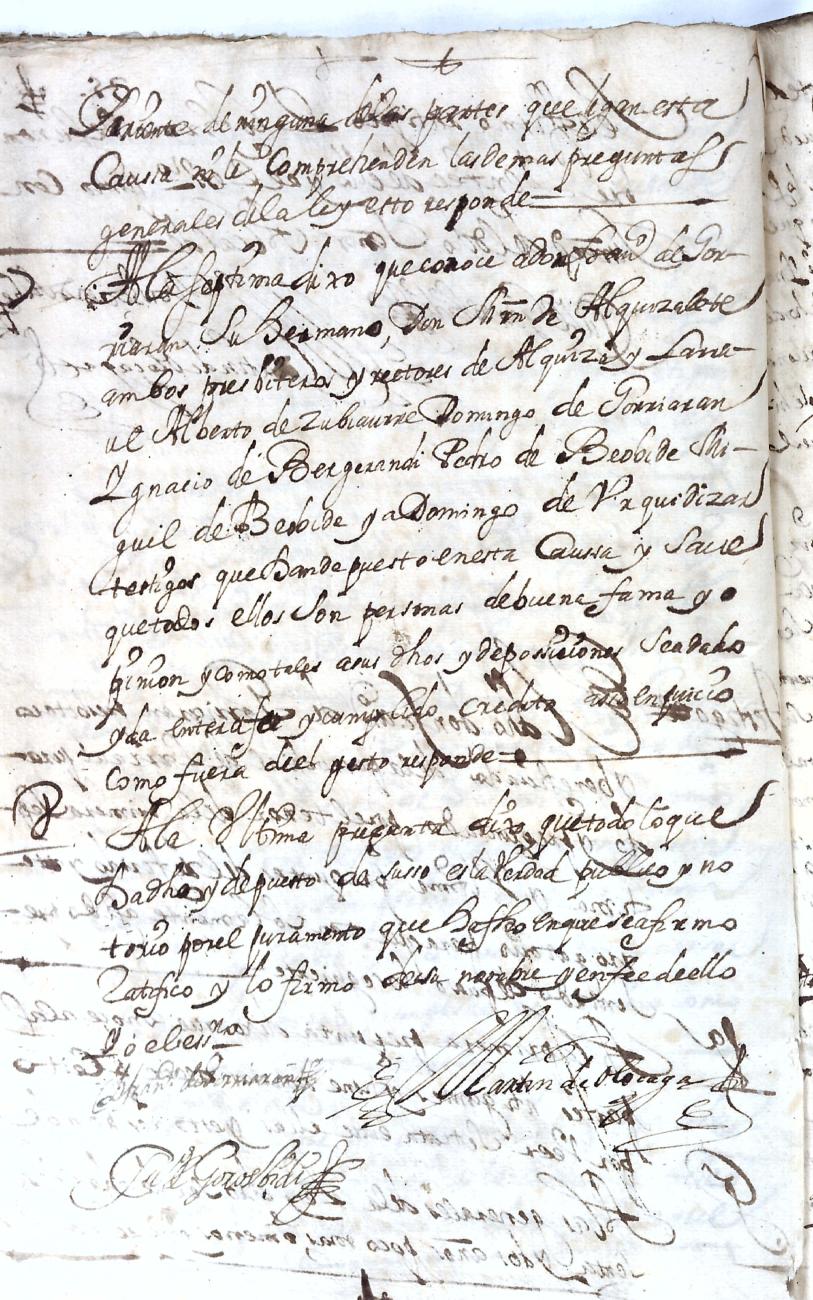 Pariente de ninguna de las partes que ligan esta
Caussa ni le Comprehenden las demas preguntas
generales de la ley esto responde
A la septima dixo que conoce a don franco de Gor-
riaran su Hermano, Don Mrn de Alquizalete
ambos presbiteros y rectores de Alquiza y Larra-
ul Alberto de Zubiaurre Domingo de Gorriaran
Ygnacio de Bergerandi Pedro de Beobide Mi-
guel de Beobide y a Domingo de Urquidizar
testigos que han depuesto en esta Caussa y save
que todos ellos son personas de buena fama y o
pinion y como tales a sus dhos y deposiciones se a dado
y da entera fee y cumplido credito assi en juicio
como fuera del y esto responde
A la Ultima pregunta dixo que todo lo que
ha dho y depuesto de susso es la Verdad publico y no
torio por el juramento que ha fho en que se afirmo
Ratifico y lo firmo de su nombre y en fee de ello
Yo el essno
Martin de Olozaga